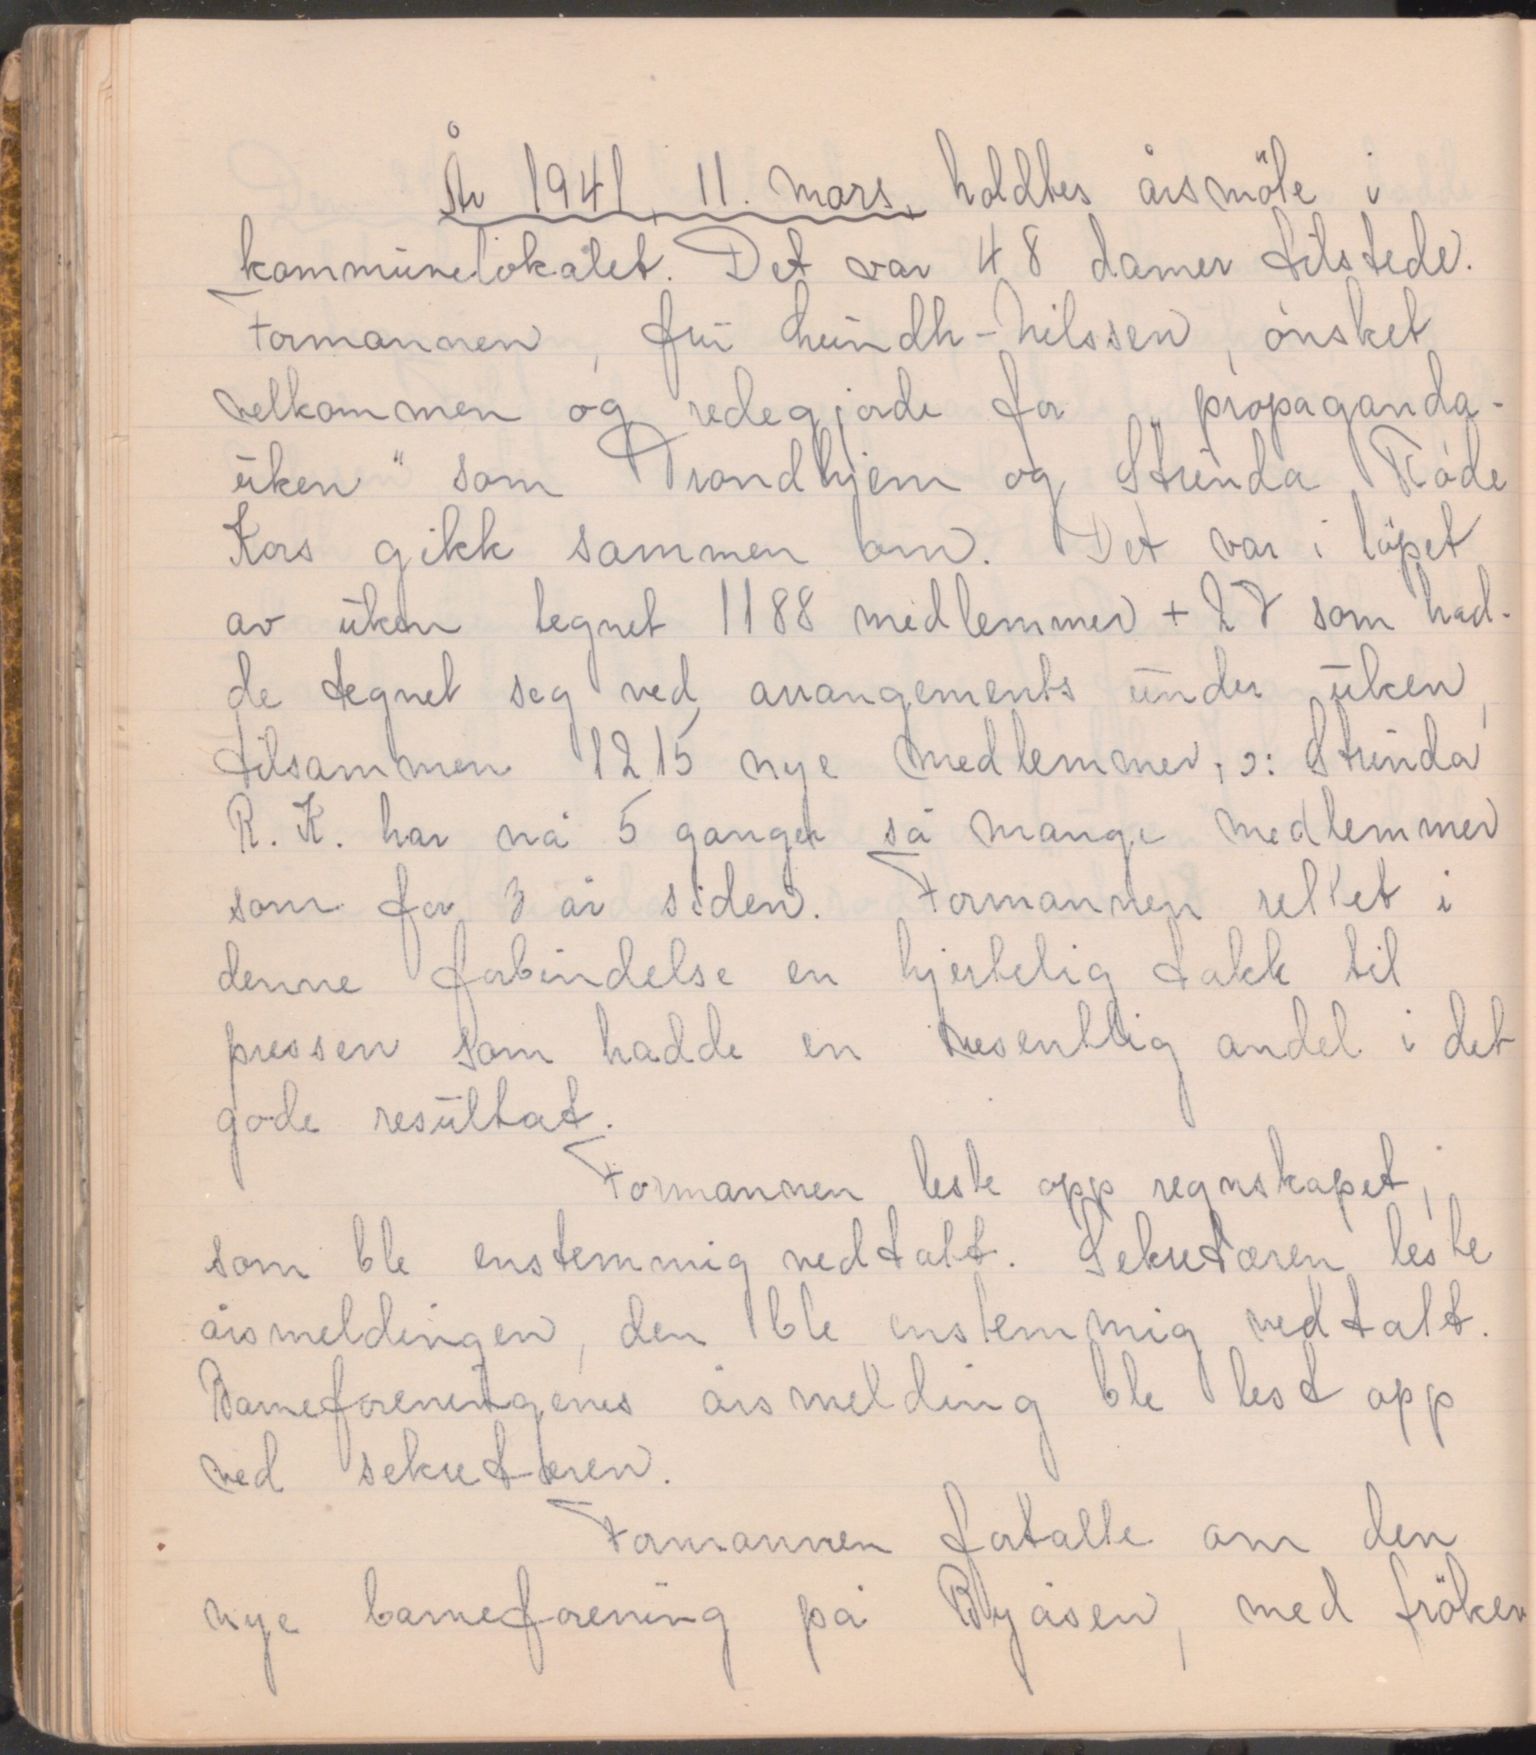 År 1941, 11. mars, holdtes årsmöte i
kommunelokalet. Det var 48 damer tilstede.
Formannen, fru Lundh-Nilssen, ønsket
velkommen og redegjorde for „propaganda-
uken" som Trondhjem og Strinda Røde
Kors gikk sammen om. Det var i løpet
av uken tegnet 1188 medlemmer + 27 som had-
de tegnet seg ved arrangements under uken,
tilsammen 1215 nye medlemmer, ɔ: Strinda
R. K. har nå 5 ganger så mange medlemmer
som for 3 år siden. Formannen rettet i
denne forbindelse en hjertelig takk til
pressen som hadde en vesentlig andel i det
gode resultat.
Formannen leste opp regnskapet,
som ble enstemmig vedtatt. Sekretæren leste
årsmeldingen, den ble enstemmig vedtatt.
Barneforeningenes årsmelding ble lest opp
ved sekretæren.
Formannen fortalte om den
nye barneforening på Byåsen, med fröken